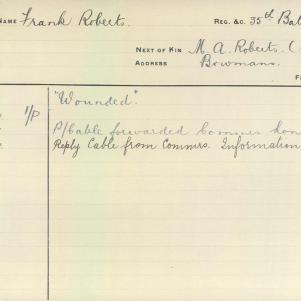 NAME Frank Roberts. REG. &C. 35th Bat
NEXT OF KIN M. A. Roberts.
ADDRESS Bowmans.
"Wounded".
1/P P/Cable forwarded Commrs
Reply Cable from Commrs. Information